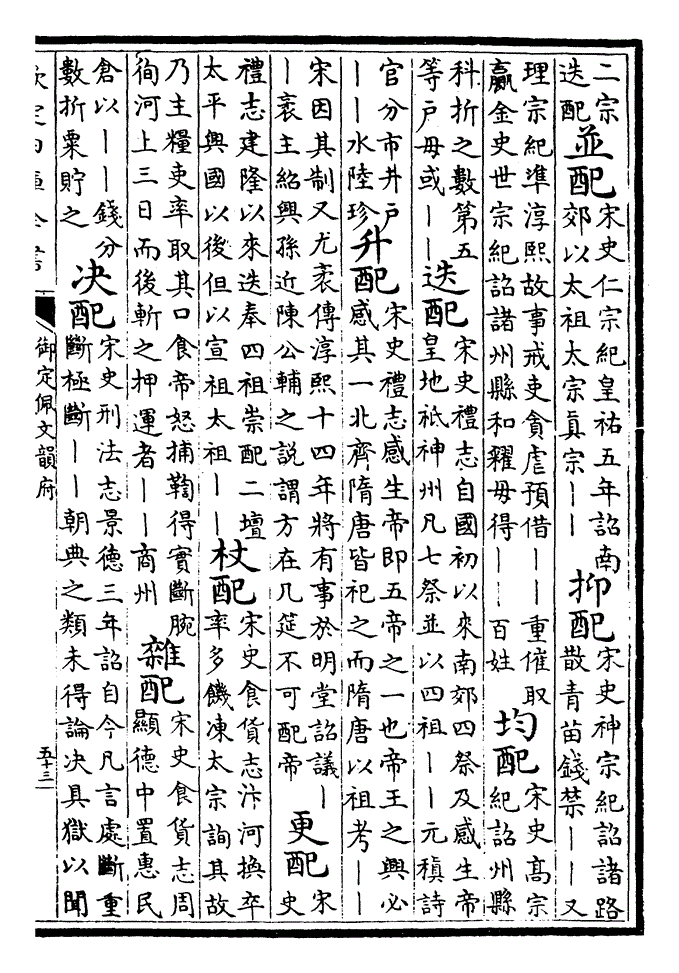 二宗
迭配
並配
宋史仁宗紀皇祐五年詔南
郊以太祖太宗真宗丨丨
抑配
宋史神宗紀詔諸路
散青苗錢禁丨丨又
理宗紀準淳熙故事戒吏貪虐預借丨丨重催取
贏金史世宗紀詔諸州縣和糴毋得丨丨百姓
均配
宋史髙宗
紀詔州縣
科折之數第五
等戸毋或丨丨
迭配
宋史禮志自國初以來南郊四祭及感生帝
皇地祇神州凡七祭並以四祖丨丨元稹詩
官分市井戸
丨丨水陸珍
升配
宋史禮志感生帝即五帝之一也帝王之興必
感其一北齊隋唐皆祀之而隋唐以祖考丨丨
宋因其制又尤袤傳淳熙十四年將有事於明堂詔議丨
丨袤主紹興孫近陳公輔之説謂方在几筵不可配帝
更配
宋
史
禮志建隆以來迭奉四祖崇配二壇
太平興國以後但以宣祖太祖丨丨
杖配
宋史食貨志汴河換卒
率多饑凍太宗詢其故
乃主糧吏率取其口食帝怒捕鞫得實斷腕
徇河上三日而後斬之押運者丨丨商州
雜配
宋史食貨志周
顯德中置惠民
倉以丨丨錢分
數折粟貯之
决配
宋史刑法志景德三年詔自今凡言處斷重
斷極斷丨丨朝典之類未得論决具獄以聞
欽定四庫全書
御定佩文韻府
五十三